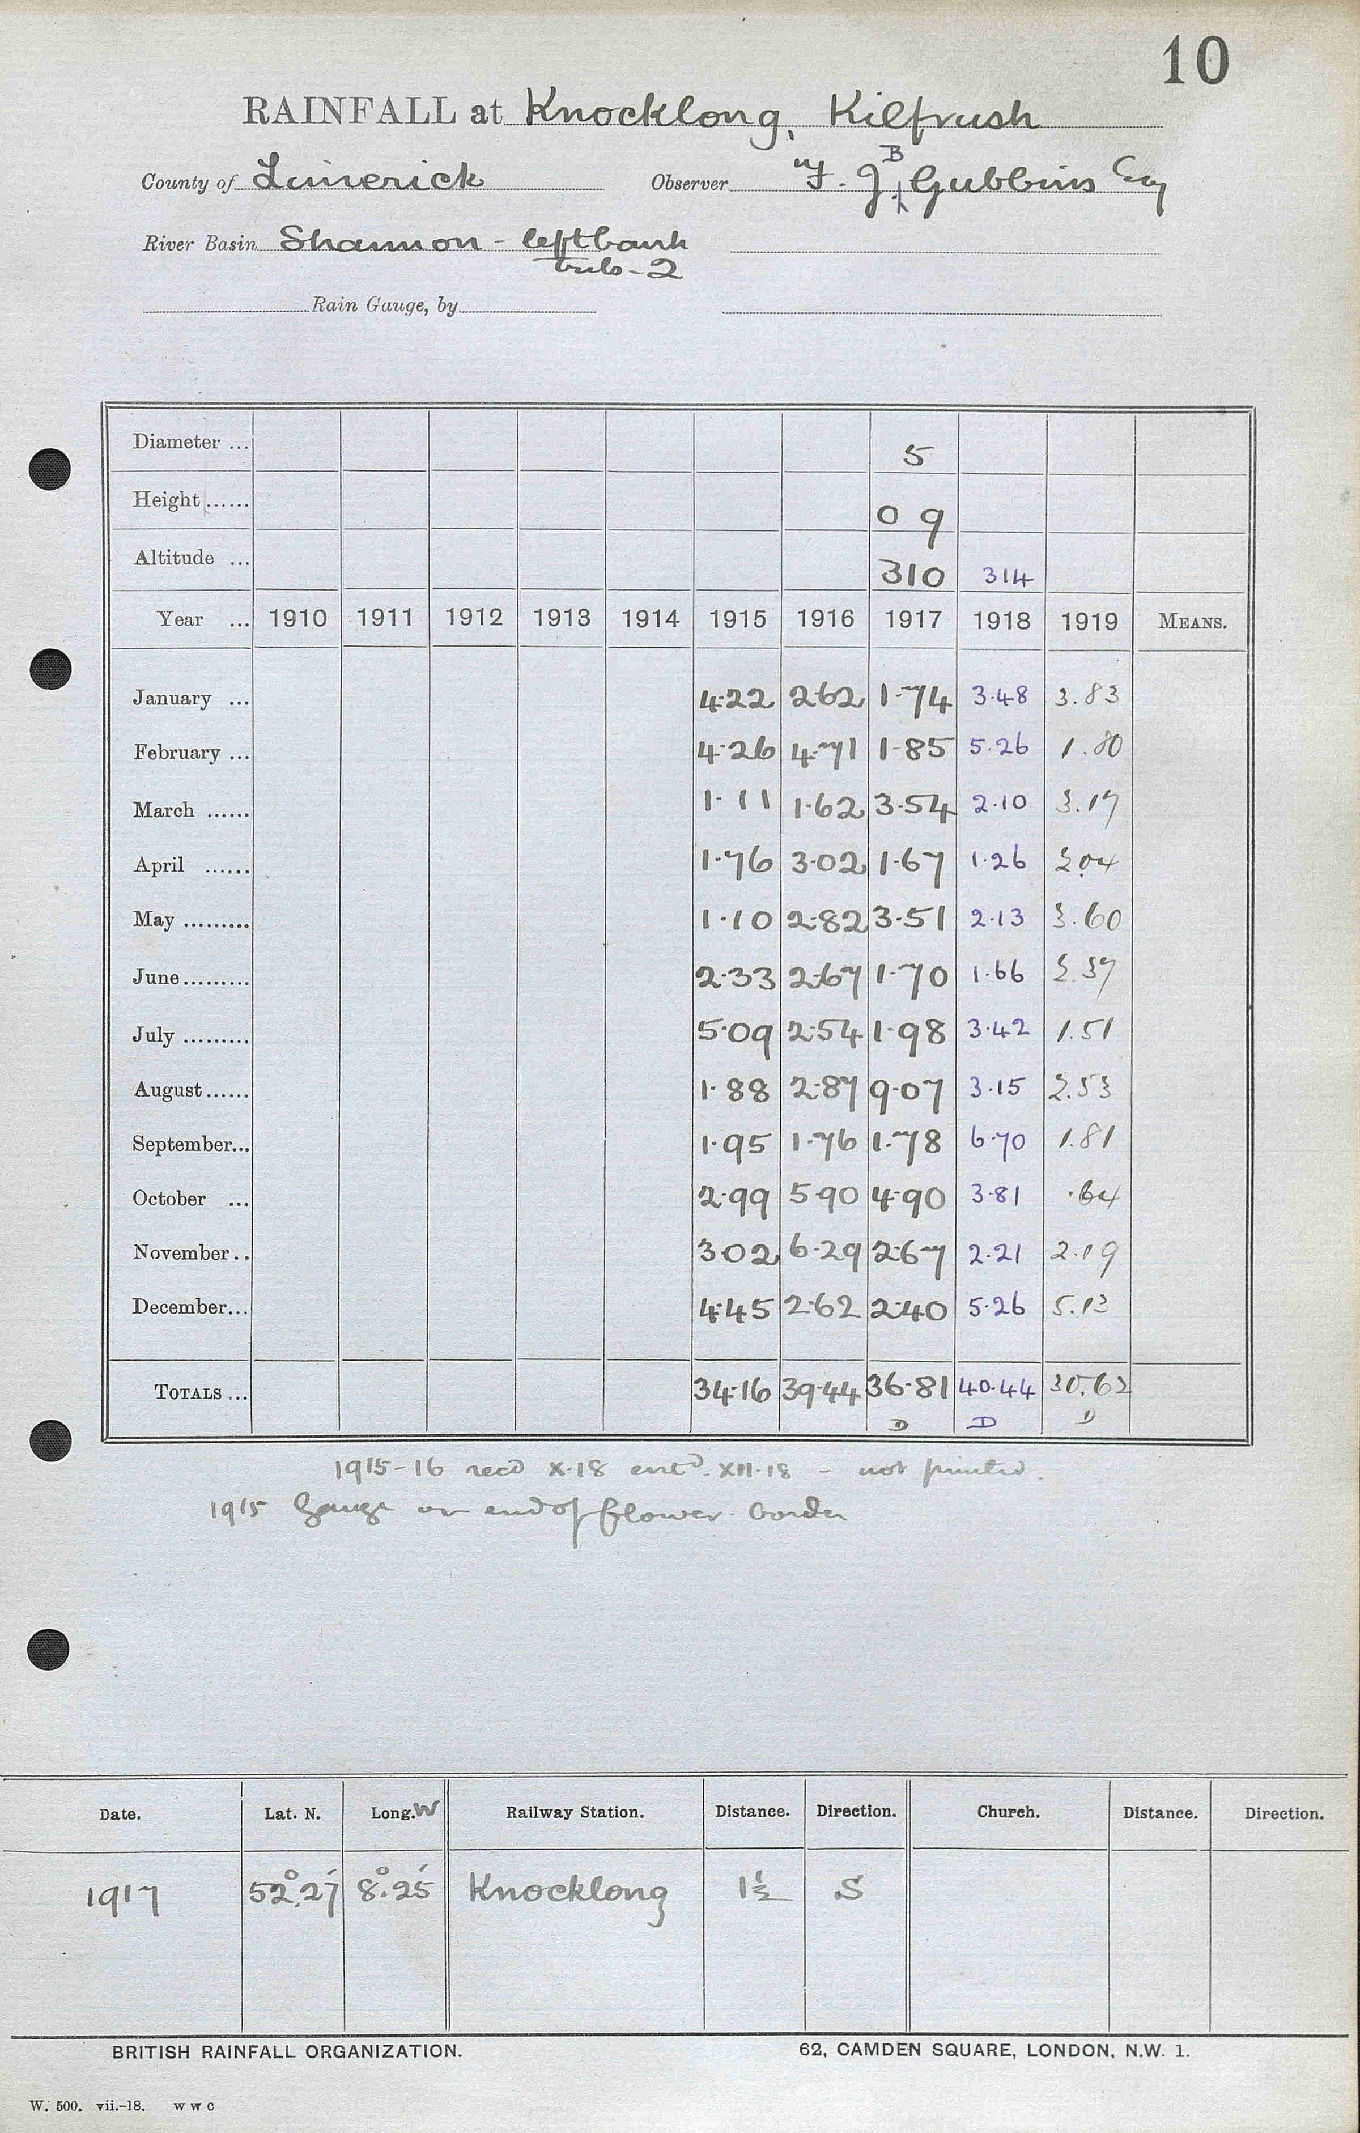 10
RAINFALL at Knocklong, Kilfrush
County of Limerick Observer F. J. B Gubbins Esq
River Basin Shannon - left bank
tribs - 2
Rain Gauge, by
Diameter ... 5
Height ...... 0 9
Altitude ... 310 314
Year ... 1910 1911 1912 1913 1914 1915 1916 1917 1918 1919 MEANS.
January ... 4.22 2.62 1.74 3.48 3.83
February ... 4.26 4.71 1.85 5.26 1.80
March ...... 1.11 1.62 3.54 2.10 3.17
April ...... 1.76 3.02 1.67 1.26 2.04
May ......... 1.10 2.82 3.51 2.13 3.60
June ......... 2.33 2.67 1.70 1.66 2.37
July ......... 5.09 2.54 1.98 3.42 1.51
August ...... 1.88 2.87 9.07 3.15 2.53
September... 1.95 1.76 1.78 6.70 1.81
October ... 2.99 5.90 4.90 3.81 .64
November .. 3.02 6.29 2.67 2.21 2.19
December... 4.45 2.62 2.40 5.26 5.13
TOTALS ... 34.16 39.44 36.81 40.44 30.62
D D D
1915-16 recd X.18 entd. XII.18 - not printed.
1915 Gauge on end of flower border
Date. Lat. N. Long. W Railway Station. Distance. Direction. Church. Distance. Direction.
1917 52° 27' 8° 25' Knocklong 1½ S
BRITISH RAINFALL ORGANIZATION. 62, CAMDEN SQUARE, LONDON, N.W. 1.
W. 500. vii.-18. w w c